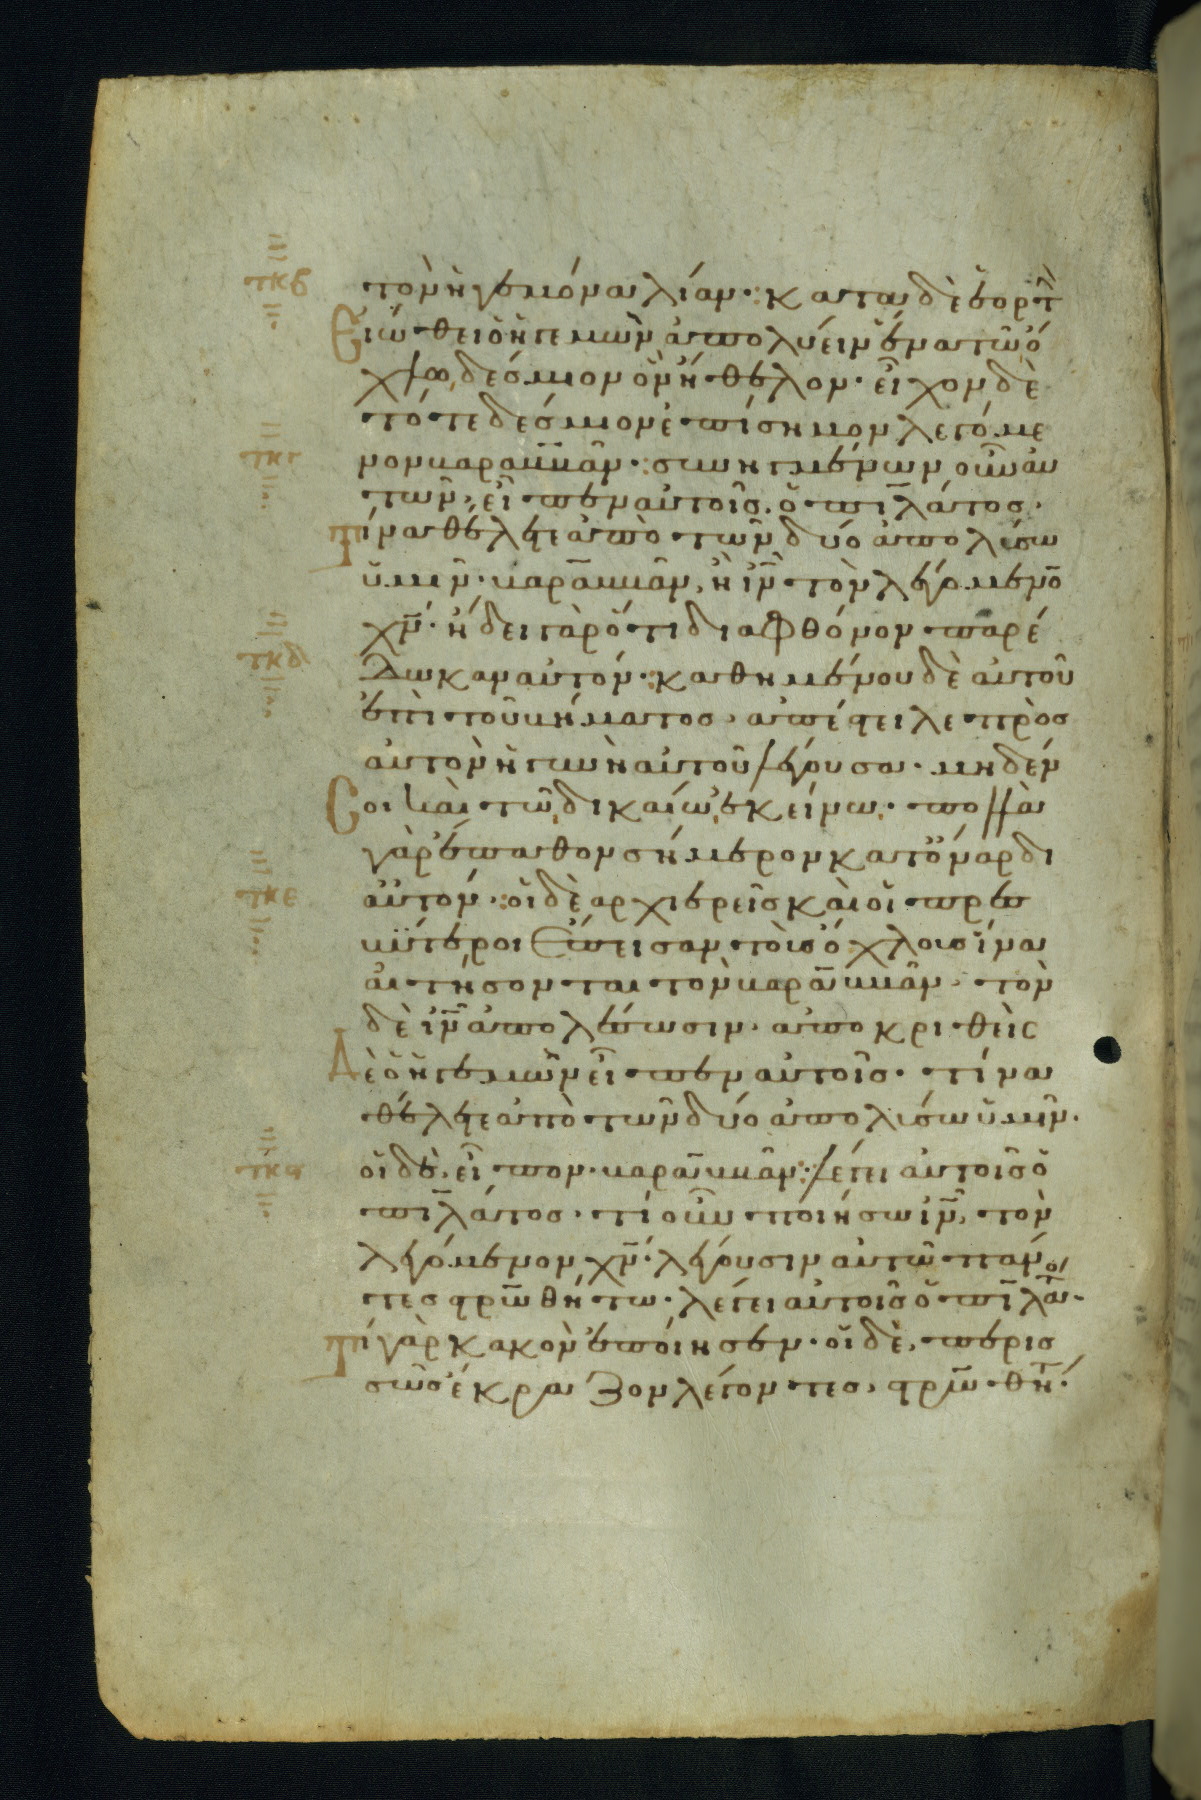 τκβ
τὸν ἡγεμόνα λίαν· κατα δὲ ἑορτ(ὴν)
Εἰώθει ὁ ἡγεμὼν ἀπολύειν ἕνα τῶ ὄ
χλω, δέσμιον ὃν ἤθελον· εἶχον δὲ
τότε δέσμιον ἐπίσημον λεγόμε
τκγ
νον βαραββᾶν· συνηγμένων οὖν αυ
τῶν, εἶπεν αὐτοῖς ὁ πιλάτος·
Τίνα θέλεται ἀπὸ τῶν δύο ἀπολύσω
ὑμῖν· βαραββᾶν, ἢ ιν̅ τὸν λεγόμενο̅
χν̅· ἤδει γὰρ ὅτι δια φθόνον παρέ
τκδ
δωκαν αυτόν· καθημένου δὲ αὐτοῦ
ἐπὶ τοῦ βήματος, απέστειλε πρὸς
αυτὸν ἡ γυνὴ αὐτοῦ λέγουσα· μηδέν
Σοι καὶ τῶ δικαίω ἐκείνω· πολλὰ
γὰρ ἔπαθον σήμερον κατ' ὄναρ δι
τκε
αὐτόν· οἱ δὲ αρχιερεῖς καὶ οἱ πρεσ
βύτεροι ἔπεισαν τοὺς ὄχλους ἵνα
αἰτήσονται τὸν βαραββᾶν, τὸν
δὲ ιν̅ ἀπολέσωσιν· αποκριθεὶς
Δὲ ὁ ἡγεμὼν εἶπεν αὐτοῖς· τίνα
θέλεται ἀπὸ τῶν δύο ἀπολύσω ὑμῖν·
τκϛ
οἱ δὲ, εἶπον· βαραββᾶν· λέγει αὐτοῖς ὁ
πιλάτος· τί οὖν ποιήσω ιν̅, τὸν
λεγόμενον χν̅· λέγουσιν αυτῶ πάν
τες στρω̅θήτω· λέγει αυτοῖς ὁ πιλᾶτο
Τί γὰρ κακὸν ἐποίησεν· οἱ δὲ, περισ
σῶς ἔκραζον λέγοντες, στρω̅θητ·